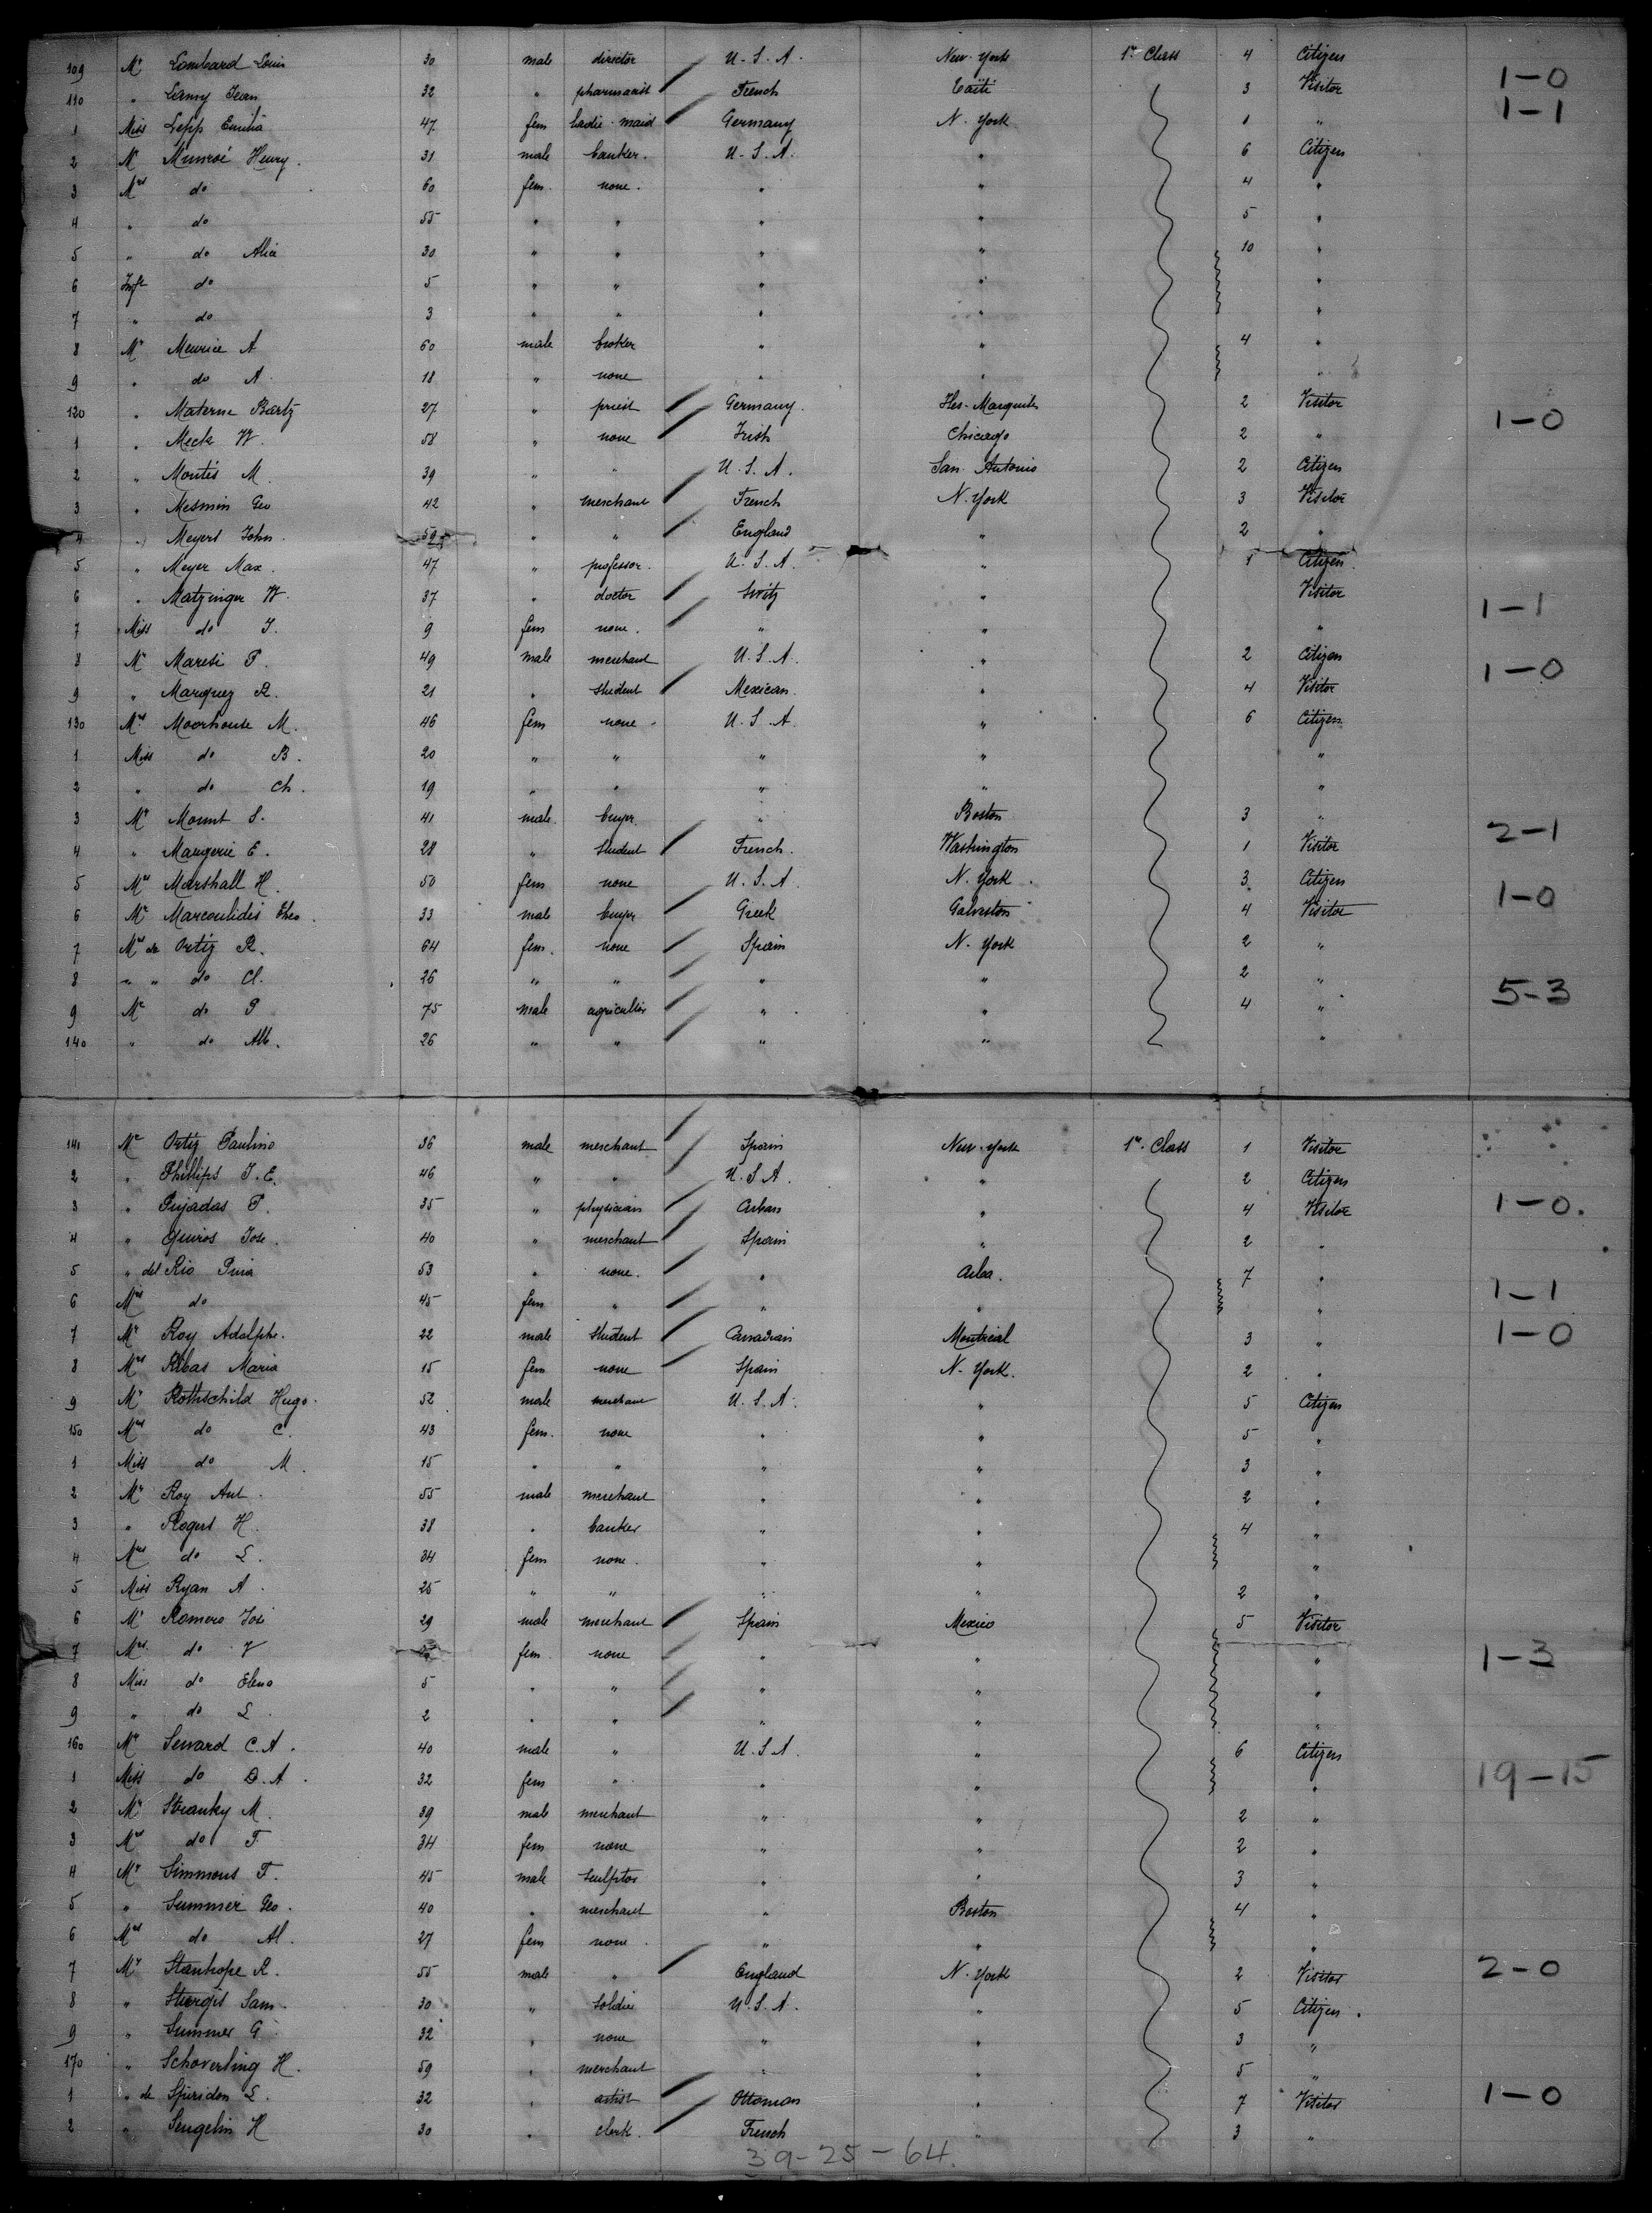 109 Mr Lombard Louis 30 male director U.S.A. New-York 1re Class 4 Citizen
110 " Lamy Jean 32 " pharmacist French Taïti 3 Visitor 1-0
1 Miss Lepp Emilia 47 fem ladie-maid Germany N. York 1 " 1-1
2 Mr Munroë Henry. 31 male banker. U.S.A. " 6 Citizen
3 Mrs do 60 fem. none. " " 4 "
4 " do 55 " " " " 5 "
5 " do Alice 30 " " " " 10 "
6 Inft do 5 " " " " "
7 " do 3 " " " " "
8 Mr Meurice A 60 male broker " " 4 "
9 " do A. 18 " none " " "
120 " Materne Bartz 27 " priest Germany. Iles-Marquises 2 Visitor
1 " Meck W. 58 " none Irish Chicago 2 " 1-0
2 " Montés M. 39 " " U.S.A. San Antonio 2 Citizen
3 " Mesmin Geo 42 " merchant French N. York 3 Visitor
4 " Meyers John. 59 " " England " 2 "
5 " Meyer Max. 47 " professor. U.S.A. " 1 Citizen.
6 " Matzinger W. 37 " doctor Switz " Visitor 1-1
7 Miss do J. 9 fem none. " " "
8 Mr Maresi P. 49 male merchant U.S.A. " 2 Citizen
9 " Marquez R. 21 " student Mexican. " 4 Visitor 1-0
130 Mrs Moorhouse M. 46 fem none. U.S.A. " 6 Citizen.
1 Miss do B. 20 " " " " "
2 " do Ch. 19 " " " " "
3 Mr Mount S. 41 male. buyer. " Boston 3 "
4 " Margerie E. 28 " student French. Washington 1 Visitor 2-1
5 Mrs Marshall H. 50 fem none U.S.A. N. York. 3 Citizen
6 Mr Marcoulidis Theo. 33 male buyer Greek Galveston 4 Visitor 1-0
7 Mrs de Ortiz R. 64 fem. none Spain N. York 2 "
8 " " do Cl. 26 " " " " 2 "
9 Mr do P 75 male agricultor " " 4 " 5-3
140 " do Alb. 26 " " " " "
141 Mr Ortiz Paulino 36 male merchant Spain New-York 1re Class 1 Visitor
2 " Phillips J.E. 46 " " U.S.A. " 2 Citizen
3 " Pujadas P. 35 " physician Cuban " 4 Visitor 1-0.
4 " Quiros Jose. 40 " merchant Spain " 2 "
5 " del Rio Puria 53 " none. " Cuba. 7 "
6 Mrs do 45 fem " " " " 1-1
7 Mr Roy Adolphe. 22 male student Canadian Montreal 3 " 1-0
8 Mrs Ribas Maria 15 fem none Spain N. York. 2 "
9 Mr Rothschild Hugo. 52 male merchant U.S.A. " 5 Citizen
150 Mrs do C. 43 fem. none " " 5 "
1 Miss do M. 15 " " " " 3 "
2 Mr Roy Ant. 55 male merchant " " 2 "
3 " Rogers H. 38 " banker " " 4 "
4 Mrs do L. 34 fem none. " " "
5 Miss Ryan A. 25 " " " " 2 "
6 Mr Romero José 29 male merchant Spain Mexico 5 Visitor
7 Mrs do V fem. none " " " 1-3
8 Miss do Eleno 5 " " " " "
9 " do L. 2 " " " " "
160 Mr Seward C.A. 40 male " U.S.A. " 6 Citizen
1 Miss do D.A. 32 fem " " " " 19-15
2 Mr Stranky M. 39 male merchant " " 2 "
3 Mrs do F. 34 fem none " " 2 "
4 Mr Simmons F. 45 male sculptor " " 3 "
5 " Summer Geo. 40 " merchant " Boston 4 "
6 Mrs do Al. 27 fem none. " " "
7 Mr Stanhope R. 55 male " England N. York 2 Visitor 2-0
8 " Sturgis Sam. 30 " soldier U.S.A. " 5 Citizen.
9 " Summer G. 32 " none " " 3 "
170 " Schoverling H. 59 " merchant " " 5 "
1 " de Spiridon L. 32 " artist Ottoman " 7 Visitor 1-0
2 " Sengelin H 30 " clerk. French " 3 "
39-25-64.